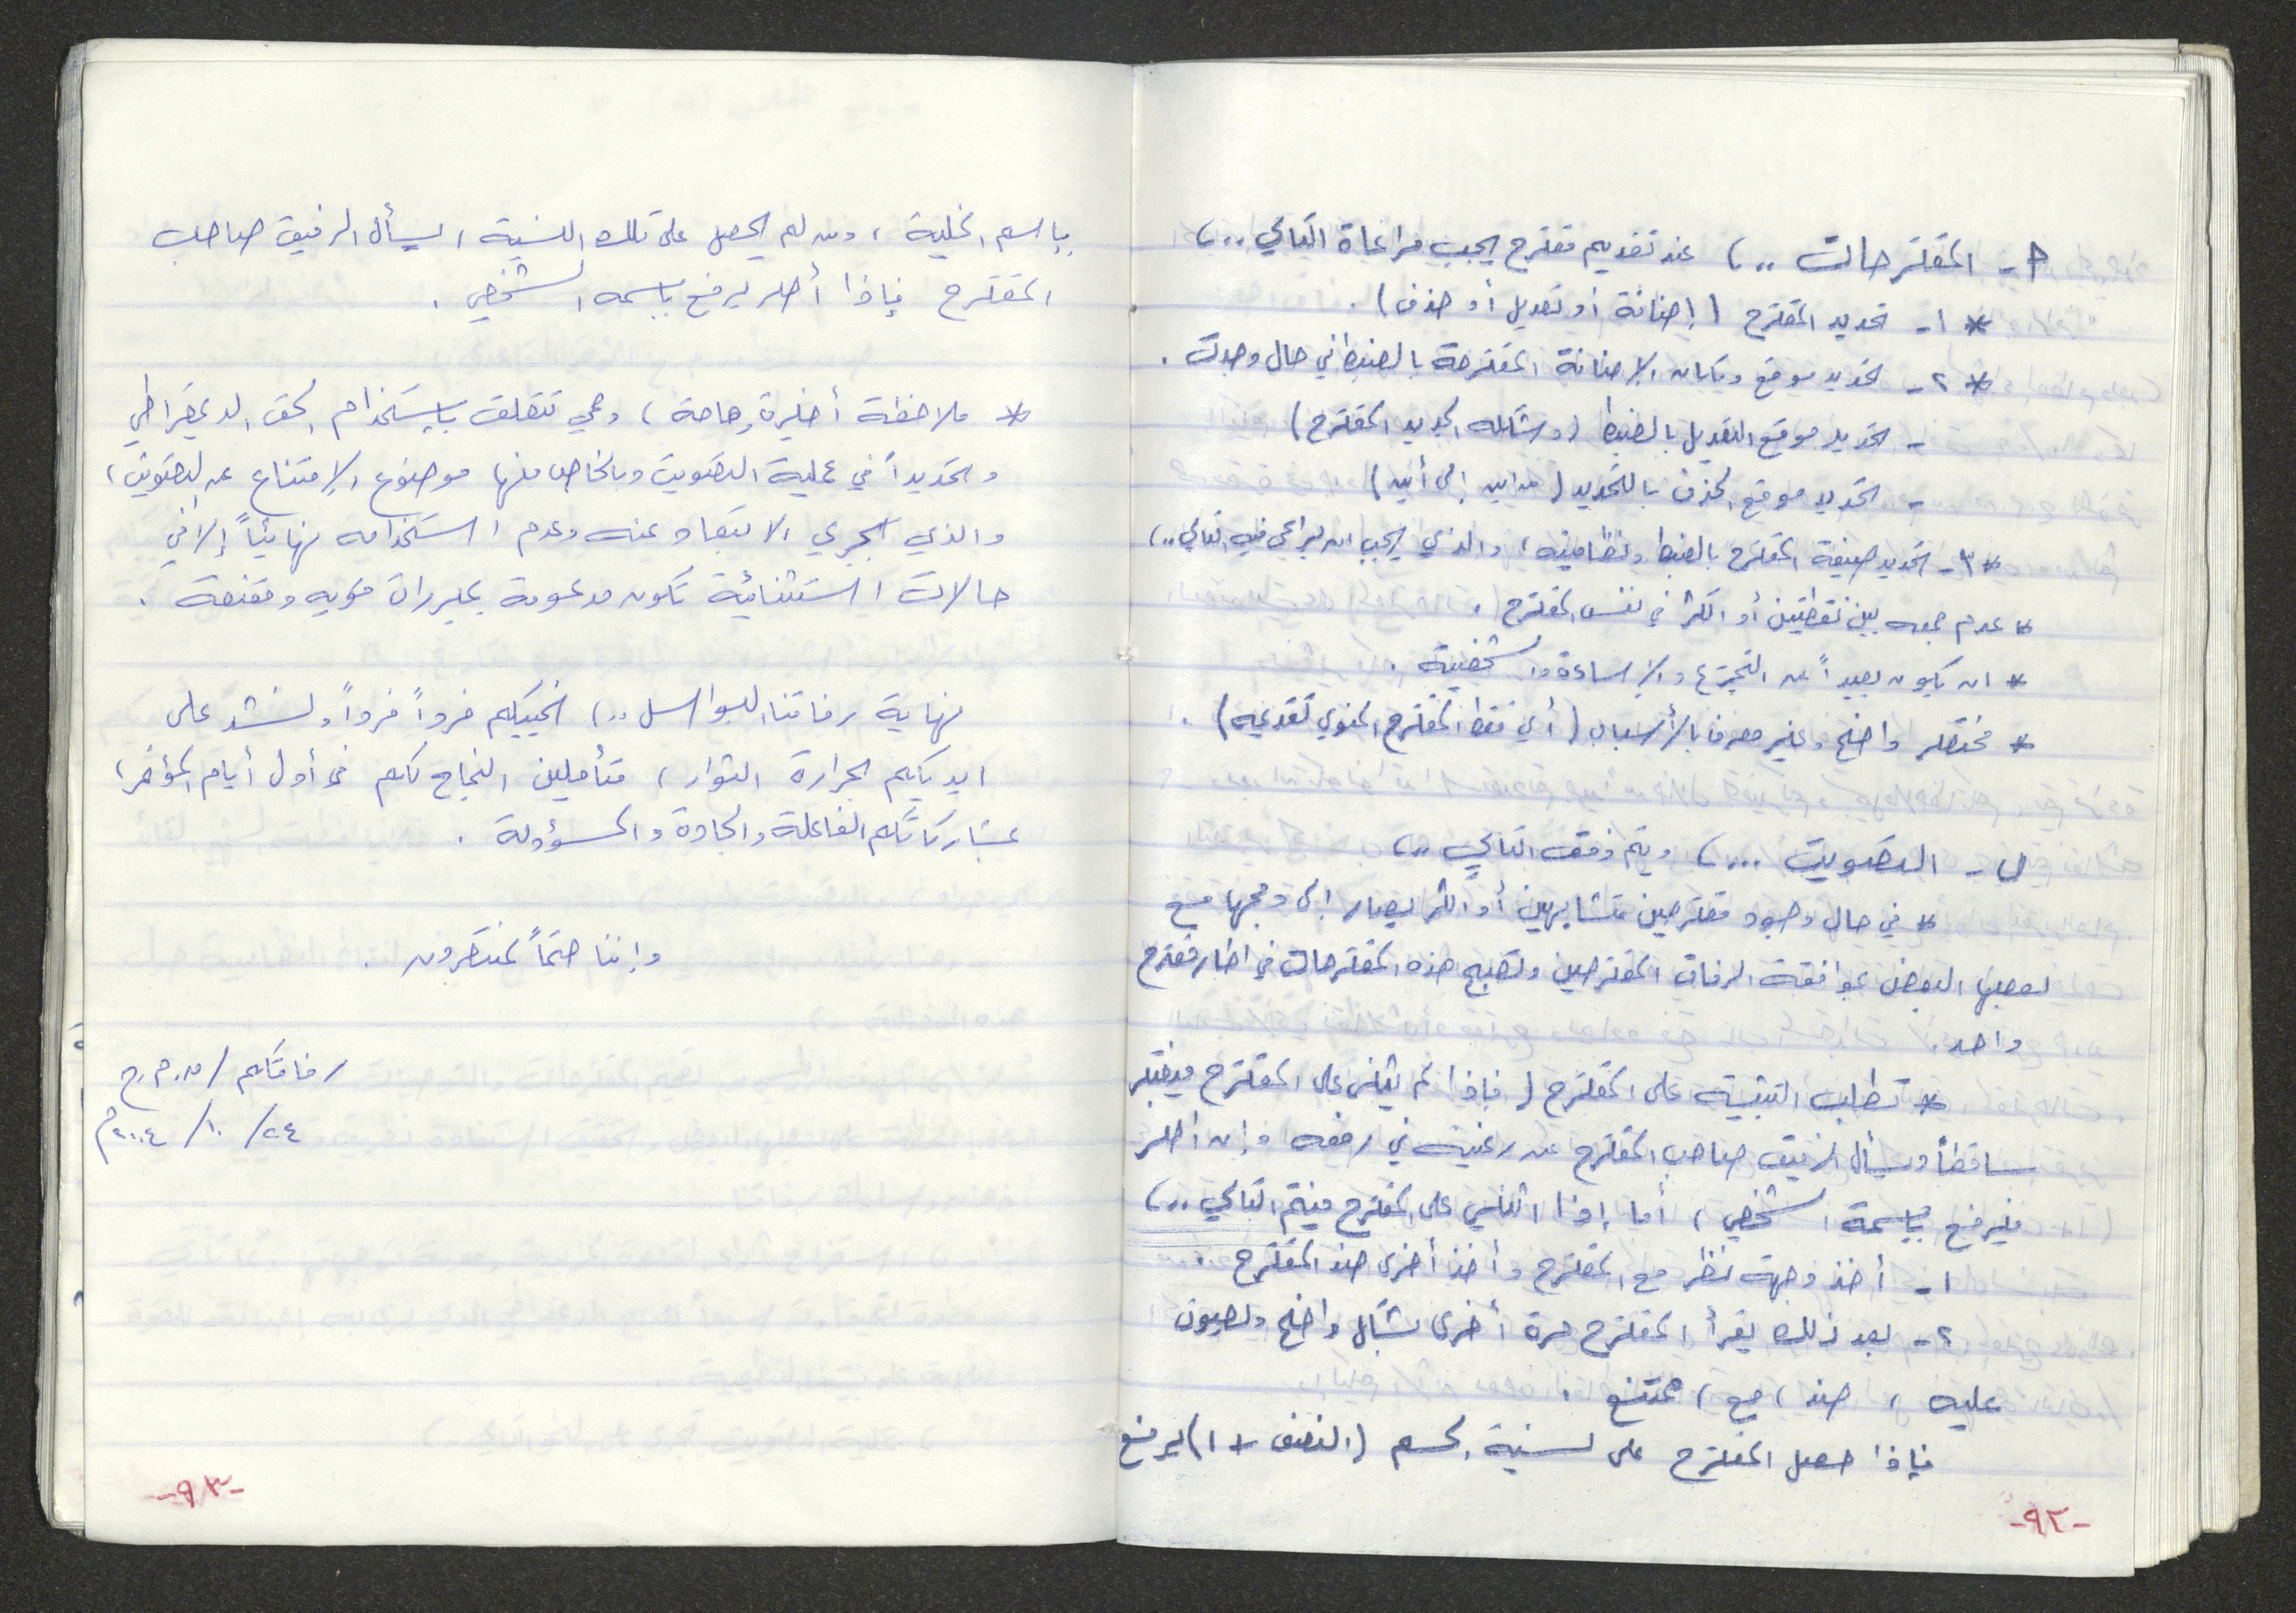 أ- المقترحات ..، عند تقديم مقترح يجب مراعاة التالي ..،
* ١- تحديد المقترح (إضافة أو تعديل أو حذف).
* ٢- تحديد موقع ومكان الإضافة المقترحة بالضبط في حال وجدت.
- تحديد موقع التعديل بالضبط (وشكله الجديد المقترح)
- تحديد موقع الحذف بالتحديد (من اين إلى أين)
* ٣- تحديد صيغة المقترح بالضبط ونظاميته، والذي يجب ان يراعى فيه التالي ..،
* عدم جمعه بين نقطتين أو اكثر في نفس المقترح.
* ان يكون بعيداً عن التجريح والإساءة والشخصية.
* مختصر واضح وغير معرف بالأسباب (أي فقط المقترح المنوي تقديمه).
ب- التصويت ...، ويتم وفق التالي ..،
* في حال وجود مقترحين متشابهين أو اكثر يصار الى دمجها مع
بعضها البعض بموافقة الرفاق المقترحين وتصبح هذه المقترحات في اطار مقترح
واحد.
* تطلب التثنية على المقترح (فإذا لم يثنى على المقترح فيعتبر
ساقطاً ويسأل الرفيق صاحب المقترح عن رغبته في رفعه وإن أصر
فيرفع بإسمه الشخصي، أما إذا اثني على المقترح فيتم التالي ..،
١- أخذ وجهة نظر مع المقترح وأخذ أخرى ضد المقترح.
٢- بعد ذلك يقرأ المقترح مرة أخرى بشكل واضح ويصوت
عليه، ضد، مع، ممتنع.
فإذا حصل المقترح على نسبة الحسم (النصف + ١) يرفع
-٩٢-
بإسم الخلية، وإن لم يحصل على تلك النسبة، يسأل الرفيق صاحب
المقترح فإذا أصر يرفع بإسمه الشخصي.
* ملاحظة أخيرة وهامة، وهي تتعلق بإستخدام الحق الديمقراطي
وتحديداً في عملية التصويت وبالخاص منها موضوع الإمتناع عن التصويت،
والذي يجري الابتعاد عنه وعدم استخدامه نهائياً إلا في
حالات استثنائية تكون مدعومة بمبررات قويه ومقنعة.
نهاية رفاقنا البواسل ..، نحييكم فرداً فرداً ونشد على
ايديكم الجرارة الثوار، متأملين النجاح لكم في أول أيام المؤتمر،
بمشاركاتكم الفاعلة والجادة والمسؤولة.
وإننا حتماً لمنتصرون.
رفاقكم / م.ح
٢٤/١٠/٢٠٠٤م
-٩٣-